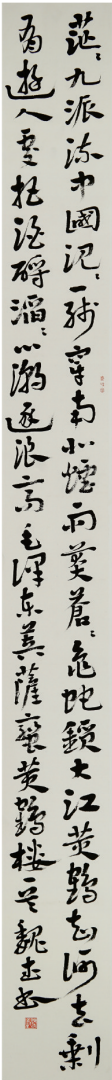 茫々九派流中國沉々一線穿南北煙雨莽蒼々龜蛇鎖大江黄鶴知何去剩
有遊人處把酒酹滔々心潮逐浪高毛澤东菩薩蠻黄鶴樓一首魏